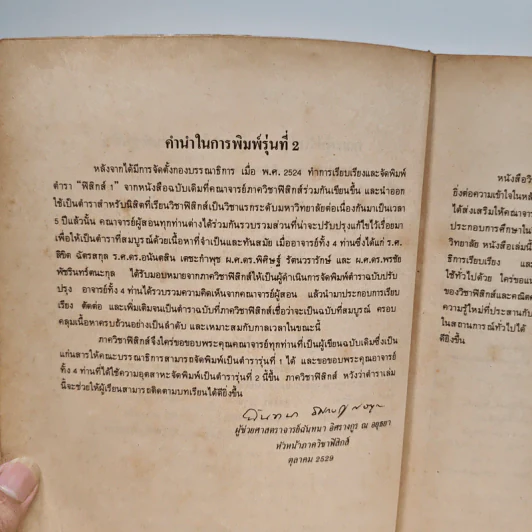 คำนำในการพิมพ์รุ่นที่ 2
หลังจากได้มีการจัดตั้งกองบรรณาธิการ เมื่อ พ.ศ. 2524 ทำการเรียบเรียงและจัดพิมพ์
ตำรา "ฟิสิกส์ 1" จากหนังสือฉบับเดิมที่คณาจารย์ภาควิชาฟิสิกส์ร่วมกันเขียนขึ้น และนำออก
ใช้เป็นตำราสำหรับนิสิตที่เรียนวิชาฟิสิกส์เป็นวิชาแรกระดับมหาวิทยาลัยต่อเนื่องกันมาเป็นเวลา
5 ปีแล้วนั้น คณาจารย์ผู้สอนทุกท่านต่างได้ร่วมกันรวบรวมส่วนที่น่าจะปรับปรุงแก้ไขไว้เรื่อยมา
เพื่อให้เป็นตำราที่สมบูรณ์ด้วยเนื้อหาที่จำเป็นและทันสมัย เมื่ออาจารย์ทั้ง 4 ท่านซึ่งได้แก่ ร.ศ.
ลิขิต ฉัตรสกุล ร.ศ.ดร.อนันตสิน เตชะกำพุช ผ.ศ.ดร.พิศิษฐ์ รัตนวรารักษ์ และ ผ.ศ.ดร.พรชัย
พัชรินทร์ตนะกุล ได้รับมอบหมายจากภาควิชาฟิสิกส์ให้เป็นผู้ดำเนินการจัดพิมพ์ตำราฉบับปรับ
ปรุง อาจารย์ทั้ง 4 ท่านได้รวบรวมความคิดเห็นจากคณาจารย์ผู้สอน แล้วนำมาประกอบการเรียบ
เรียง ตัดต่อ และเพิ่มเติมจนเป็นตำราฉบับที่ภาควิชาฟิสิกส์เชื่อว่าจะเป็นฉบับที่สมบูรณ์ ครอบ
คลุมเนื้อหาครบถ้วนอย่างเป็นลำดับ และเหมาะสมกับกาลเวลาในขณะนี้
ภาควิชาฟิสิกส์จึงใคร่ขอขอบพระคุณคณาจารย์ทุกท่านที่เป็นผู้เขียนฉบับเดิมซึ่งเป็น
แก่นสารให้คณะบรรณาธิการสามารถจัดพิมพ์เป็นตำรารุ่นที่ 1 ได้ และขอขอบพระคุณอาจารย์
ทั้ง 4 ท่านที่ได้ใช้ความอุตสาหะจัดพิมพ์เป็นตำรารุ่นที่ 2 นี้ขึ้น ภาควิชาฟิสิกส์ หวังว่าตำราเล่ม
นี้จะช่วยให้ผู้เรียนสามารถติดตามบทเรียนได้ดียิ่งขึ้น
ผู้ช่วยศาสตราจารย์ฉันทนา อิศรางกูร ณ อยุธยา
หัวหน้าภาควิชาฟิสิกส์
ตุลาคม 2529
หนังสือวิ
ยิ่งต่อความเข้าใจในหลั
ได้ส่งเสริมให้คณาจาร
ประกอบการศึกษาใน
วิทยาลัย หนังสือเล่มนี้
ธิการเรียบเรียง แล
ใช้ทั่วไปด้วย ใคร่ขอแ
ของวิชาฟิสิกส์และคณิตศ
ความรู้ใหม่ที่ประสานกับ
ในสถานการณ์ทั่วไปได้
ดียิ่งขึ้น